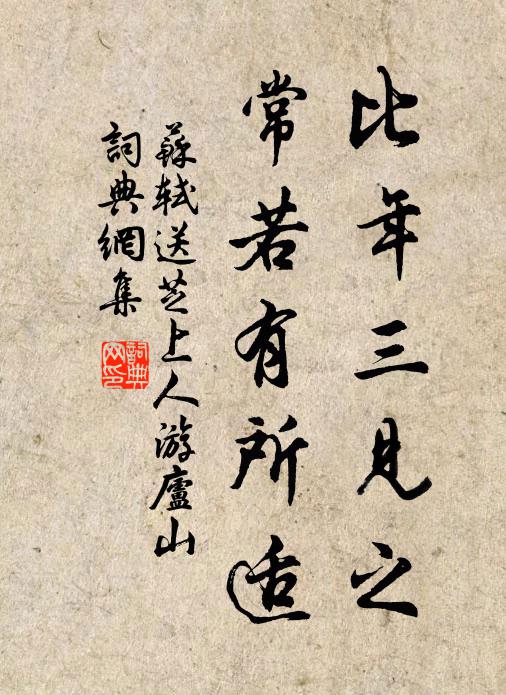 比年三見之
常若有所适
蘇軾送芝上人游廬山
詞典網集
詞典网印